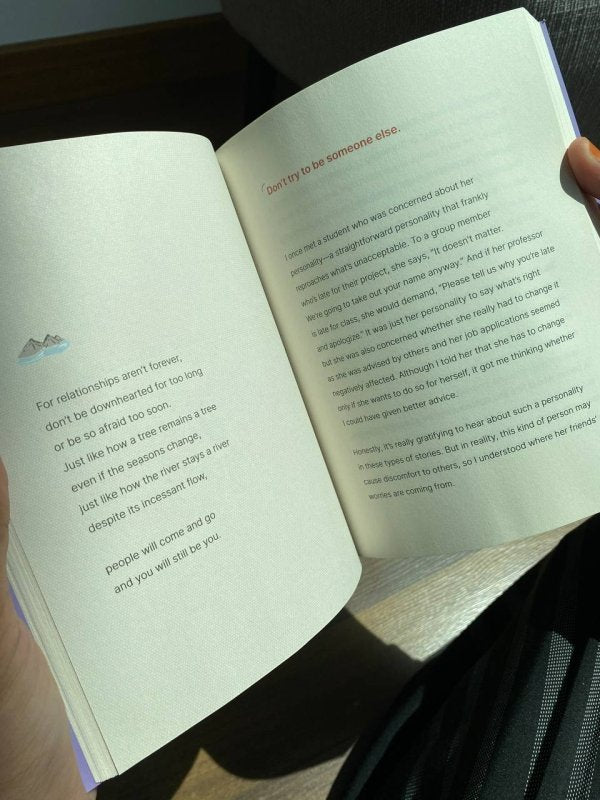 For relationships aren't forever,
don't be downhearted for too long
or be so afraid too soon.
Just like how a tree remains a tree
even if the seasons change,
just like how the river stays a river
despite its incessant flow,
people will come and go
and you will still be you.
Don't try to be someone else.
I once met a student who was concerned about her
personality—a straightforward personality that frankly
reproaches what's unacceptable. To a group member
who's late for their project, she says, "It doesn't matter.
We're going to take out your name anyway." And if her professor
is late for class, she would demand, "Please tell us why you're late
and apologize." It was just her personality to say what's right
but she was also concerned whether she really had to change it
as she was advised by others and her job applications seemed
negatively affected. Although I told her that she has to change
only if she wants to do so for herself, it got me thinking whether
I could have given better advice.
Honestly, it's really gratifying to hear about such a personality
in these types of stories. But in reality, this kind of person may
cause discomfort to others, so I understood where her friends'
worries are coming from.